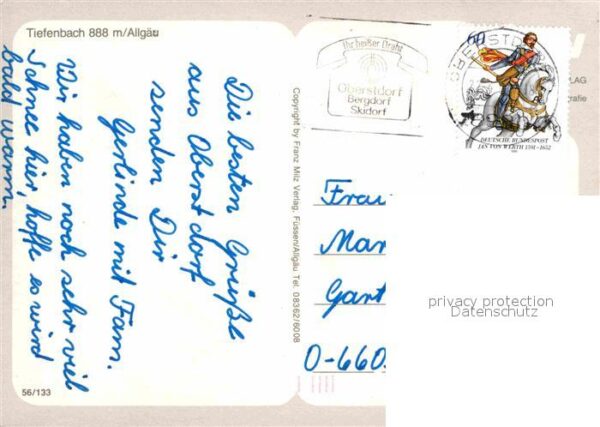 Tiefenbach 888 m/Allgäu
Die besten Grüße
aus Oberstdorf
senden Dir
Gerlinde mit Fam.
Wir haben noch sehr viel
Schnee hier, hoffe es wird
bald warm.
56/133
Copyright by Franz Milz Verlag, Füssen/Allgäu Tel. 08362/6008
Ihr heißer Draht
Oberstdorf
Bergdorf
Skidorf
60
DEUTSCHE BUNDESPOST
JAN VON WERTH 1591-1652
Frau
Mar
Gart
O-660
privacy protection
Datenschutz